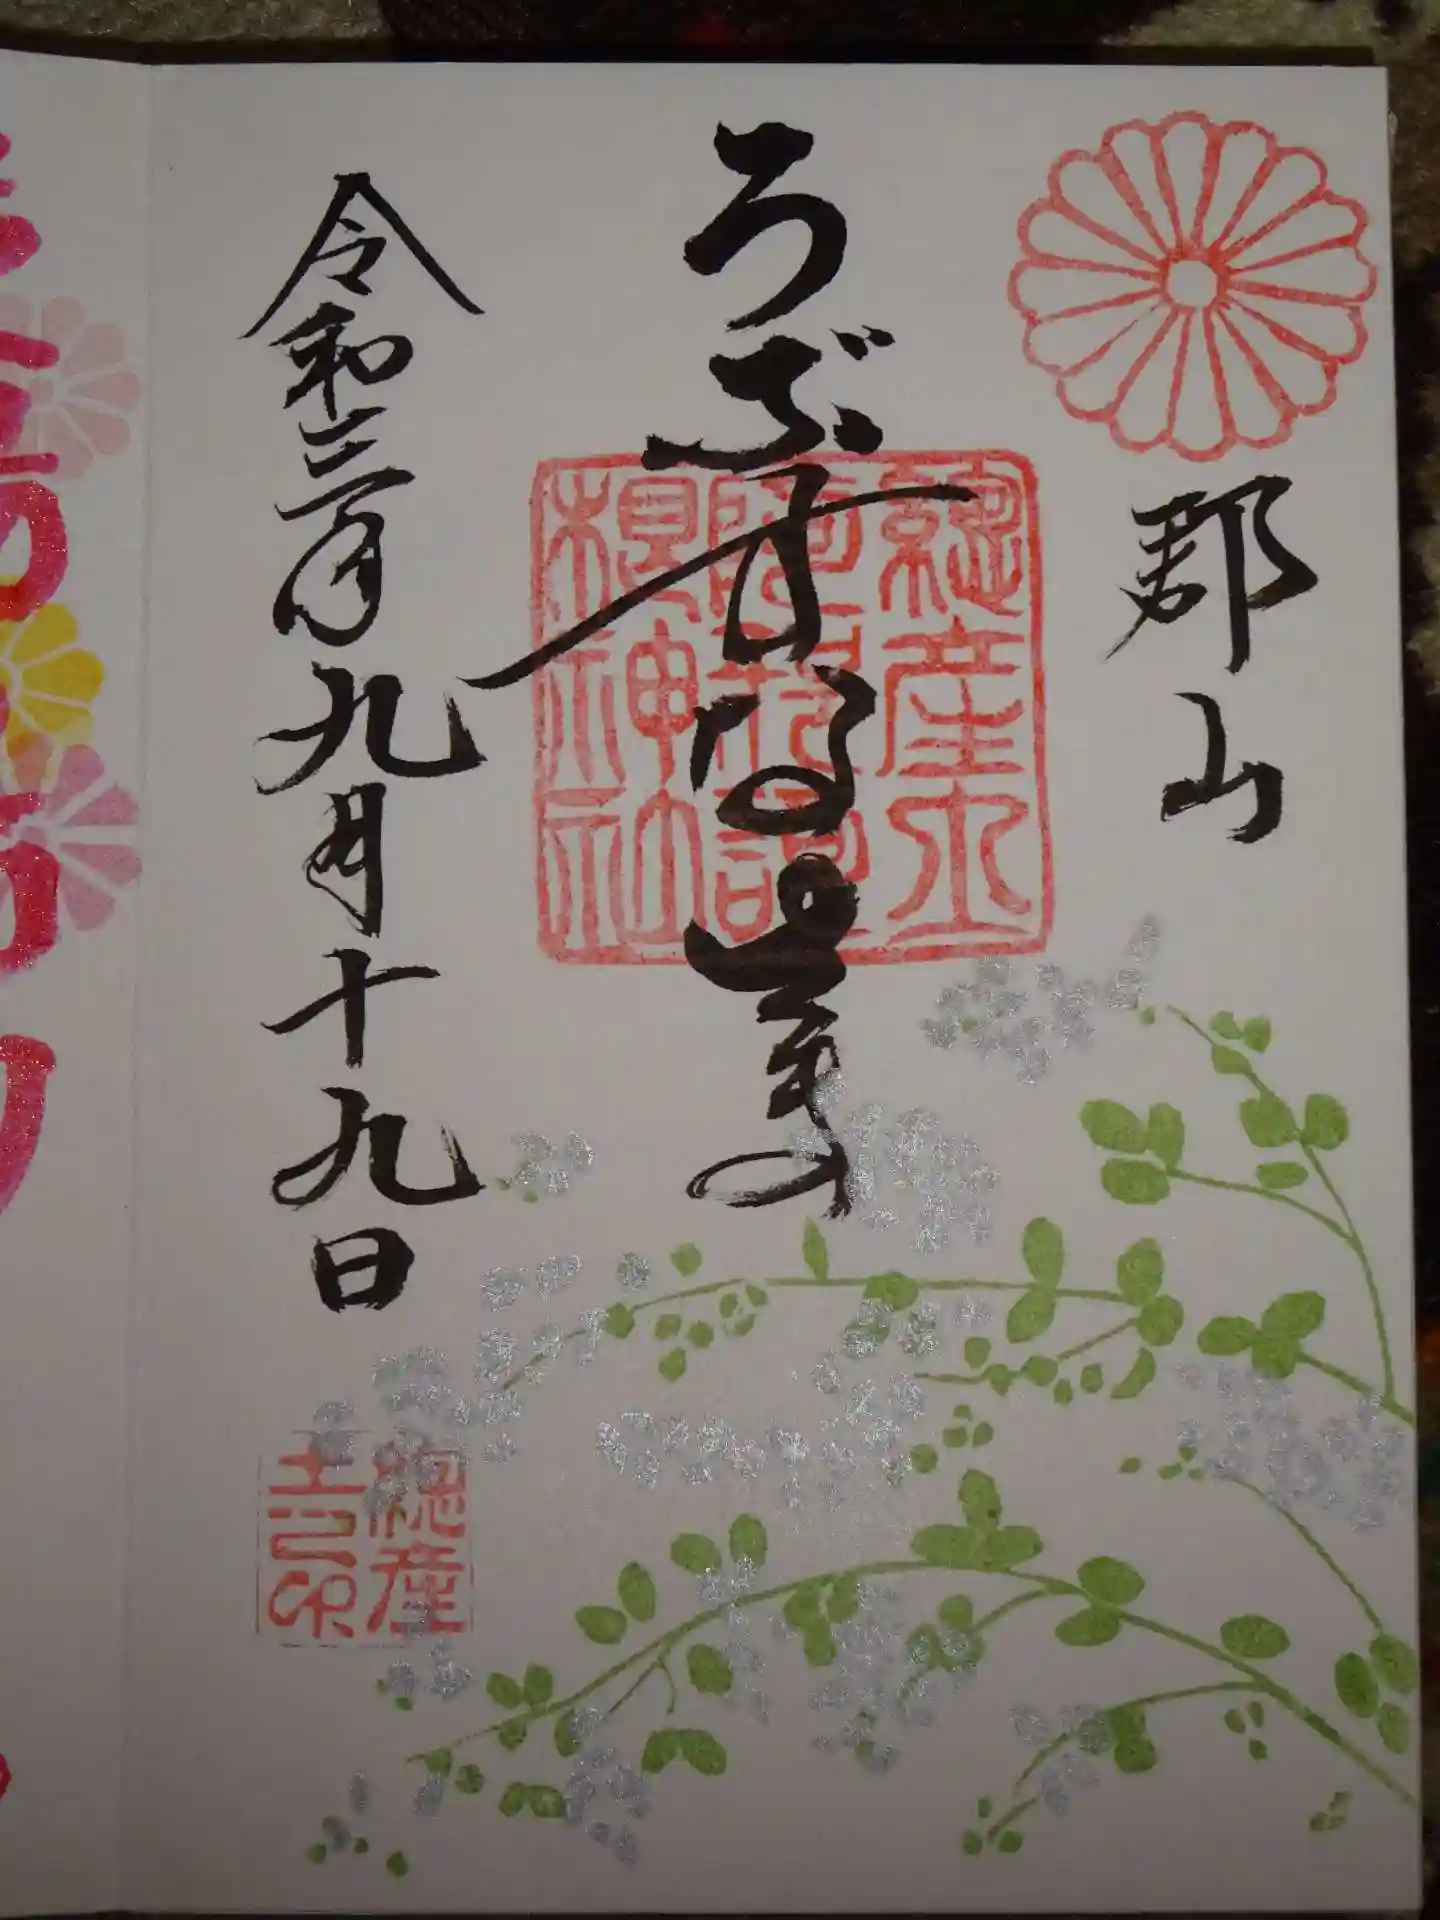 郡山
うぶすな
總産土
阿邪訶
根神社
令和三年九月十九日
總産
土之印